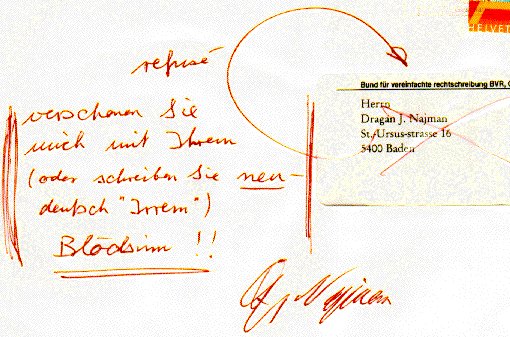 HELVET
refusé
Bund für vereinfachte rechtschreibung BVR,
Herrn
Dragan J. Najman
St.-Ursus-strasse 16
5400 Baden
verschonen Sie
mich mit Ihrem
(oder schreiben Sie neu-
deutsch "Irrem")
Blödsinn !!
Najman